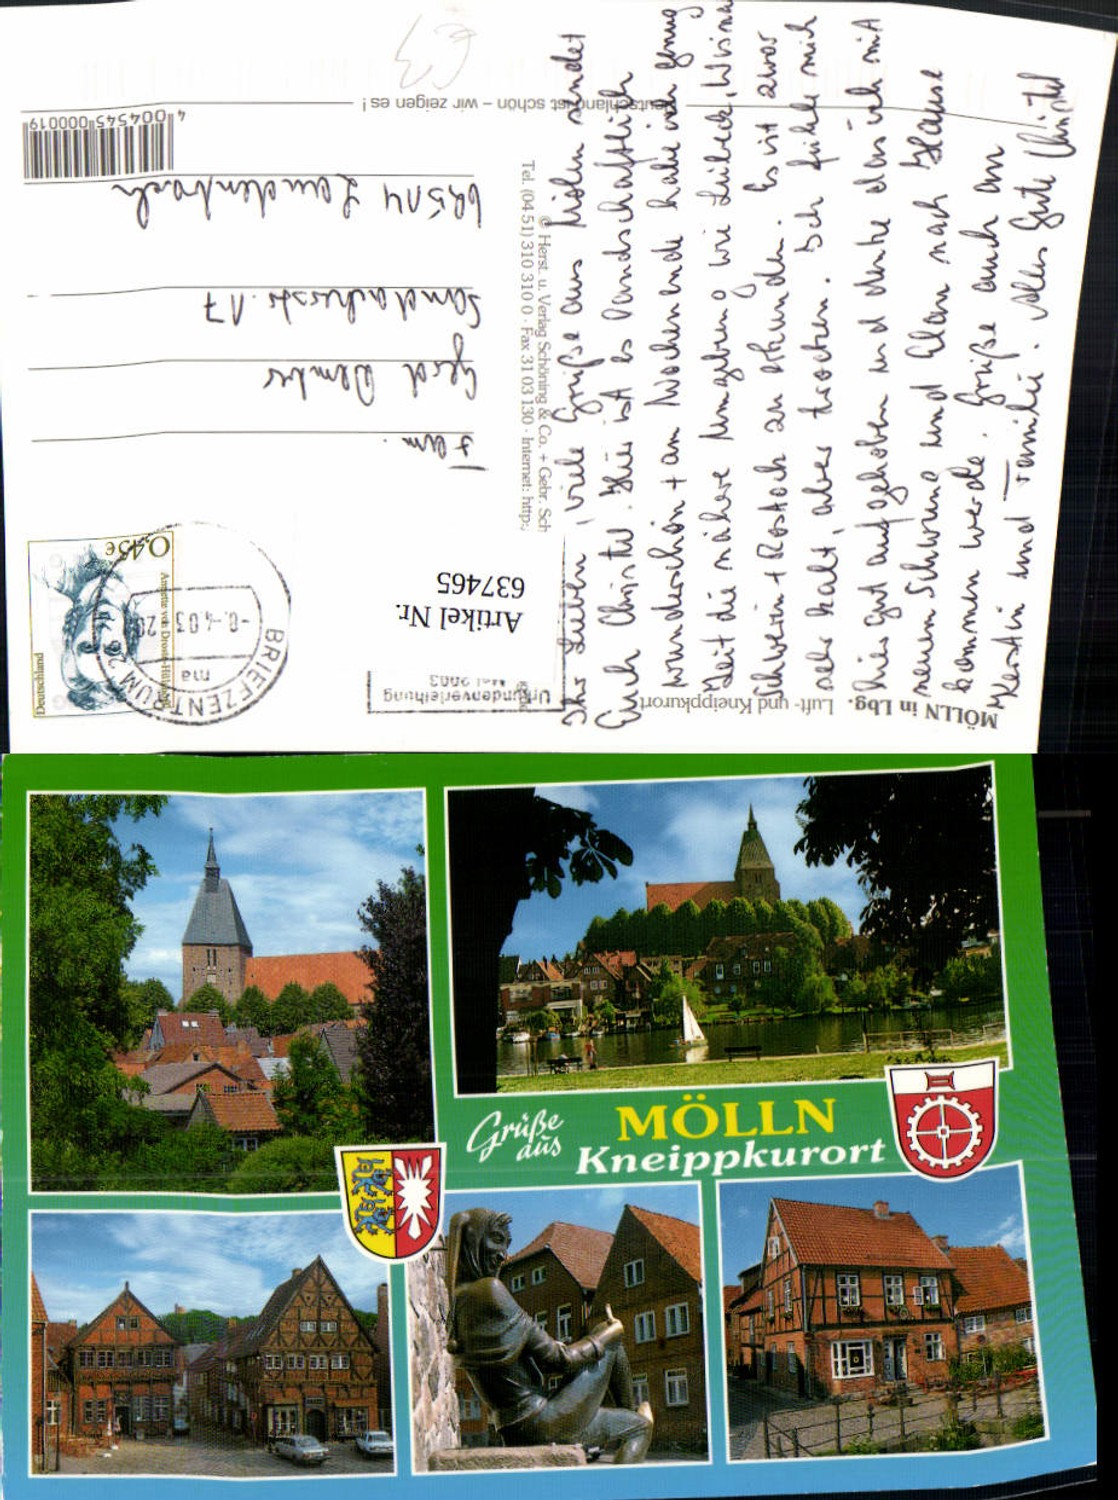 Deutschland ist schön – wir zeigen es !
4 004545 000019
Fam.
Gerd
69514 Laudenbach
Deutschland
Annette von Droste-Hülshoff
0,45€
BRIEFZENTRUM
ma
Artikel Nr.
637465
Urkundenverleihung
Mai 2003
© Herst. u. Verlag Schöning & Co. + Gebr. Sch
Tel. (04 51) 310 310 0 · Fax 31 03 130 · Internet: http:
MÖLLN in Lbg. Luft- und Kneippkurort
Ihr Lieben, viele Grüße aus Mölln sendet
Euch Christel. Hier ist es landschaftlich
wunderschön + am Wochenende habe ich genug
Zeit die nähere Umgebung wie Lübeck, Wismar
Schwerin + Rostock zu erkunden. Es ist zwar
sehr kalt, aber trocken. Ich fühle mich
hier gut aufgehoben und denke das ich mit
neuem Schwung und Elan nach Hause
kommen werde. Grüße auch an
Kerstin und Familie. Alles Gute Christel
Grüße
aus
MÖLLN
Kneippkurort